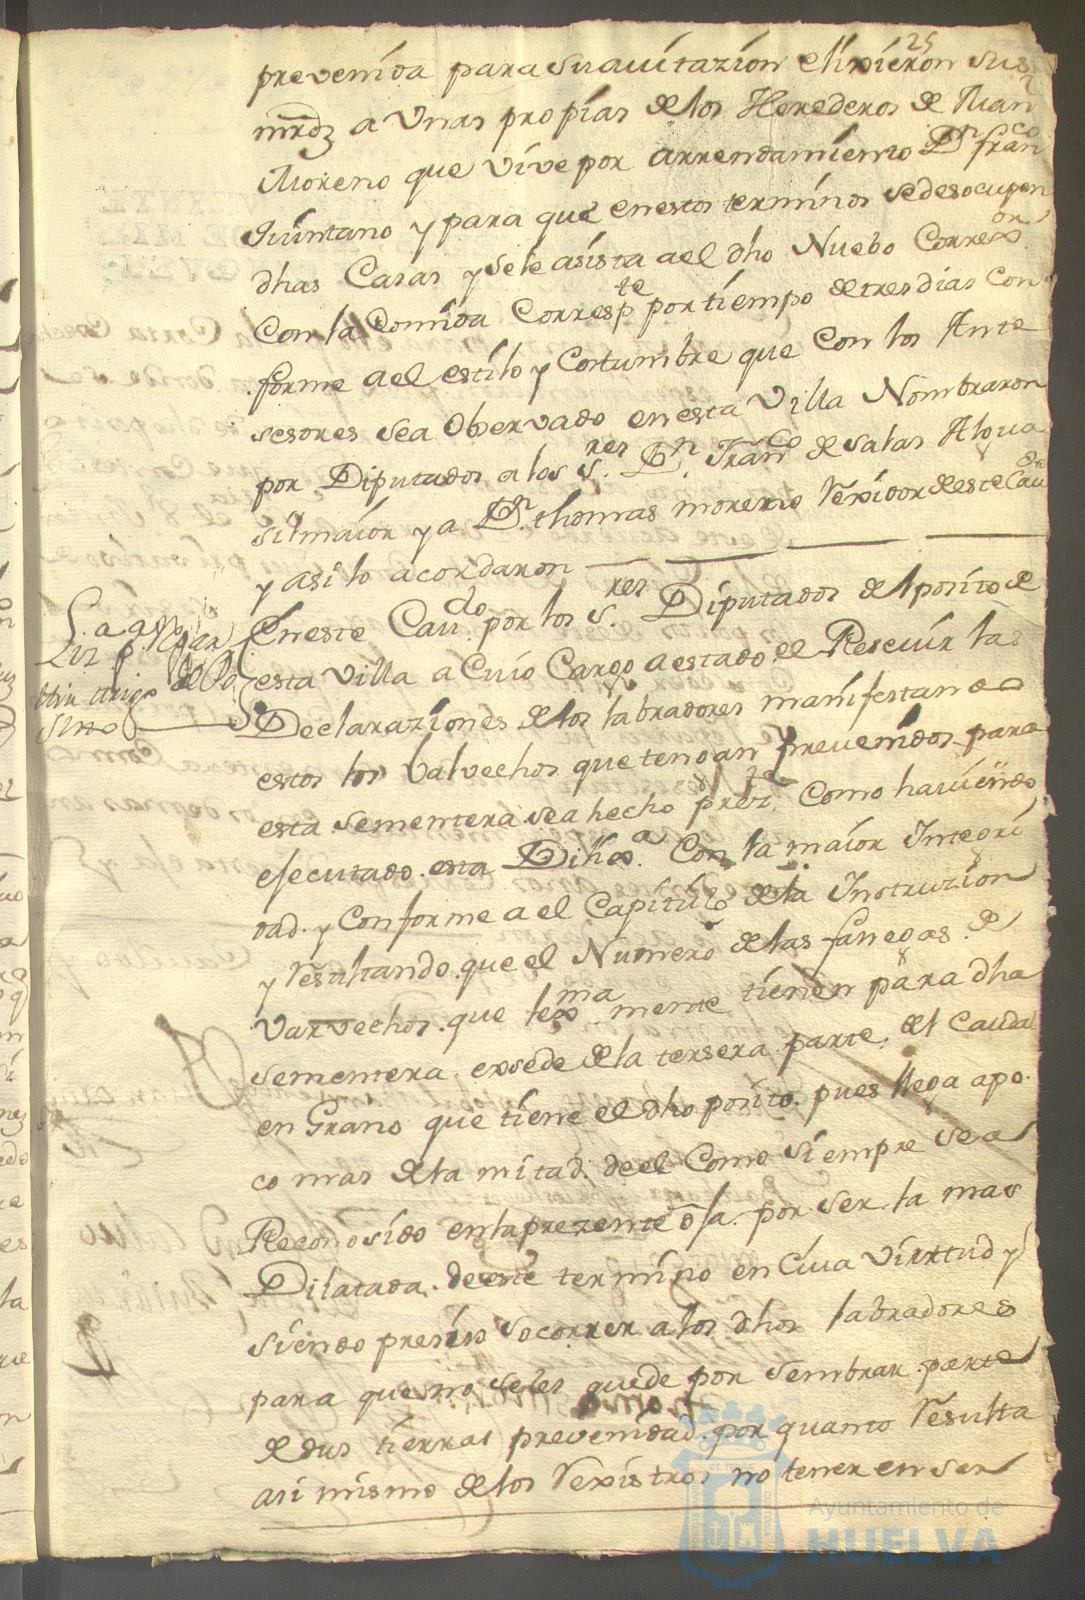 25
prevenida para su avitazion elixieron sus
mrdz a Unas propias de los Herederos de Juan
Moreno que vive por arrendamiento Dn franco
Quintano y para que en estos terminos se desocupen
dhas Casas y se le asista a el dho Nuebo Correxor
Con la Comida Correspte por tiempo de tres dias Con
forme a el estilo y Costumbre que Con los Ante
sesores sea Obervado en esta Villa Nombraron
por Diputados a los Sres Dn Franco de salas Algua
sil maior y a Dn thomas moreno Rexidor de este Cavdo
y asi lo acordaron
En este Cavdo por los Sres Diputados del posito de
esta villa a Cuio Cargo a estado el Resevir las
Declaraziones de los labradores manifestando
estos los Valvechos que tengan prevenidos para
esta sementera sea hecho preste Como haviendo
esecutado esta Dilixa Con la maior Integri
dad y Conforme a el Capitulo de la Instruzion
y Resultando que el Numero de las fanegas de
varvechos que lexmamente tienen para dha
sementera exsede de la tersera parte del Caudal
en Grano que tiene el dho posito pues llega a po
co mas de la mitad de el Como siempre se a
Reconosido en la prezente oja por ser la mas
Dilatada de este termino en Cuia virtud y
siendo presiso socorrer a los dhos labradores
para que no se les quede por sembrar parte
de sus tierras prevenidas por quanto Resulta
asi mismo de los Rexistros no tener en ser
Ayuntamiento de
HUELVA